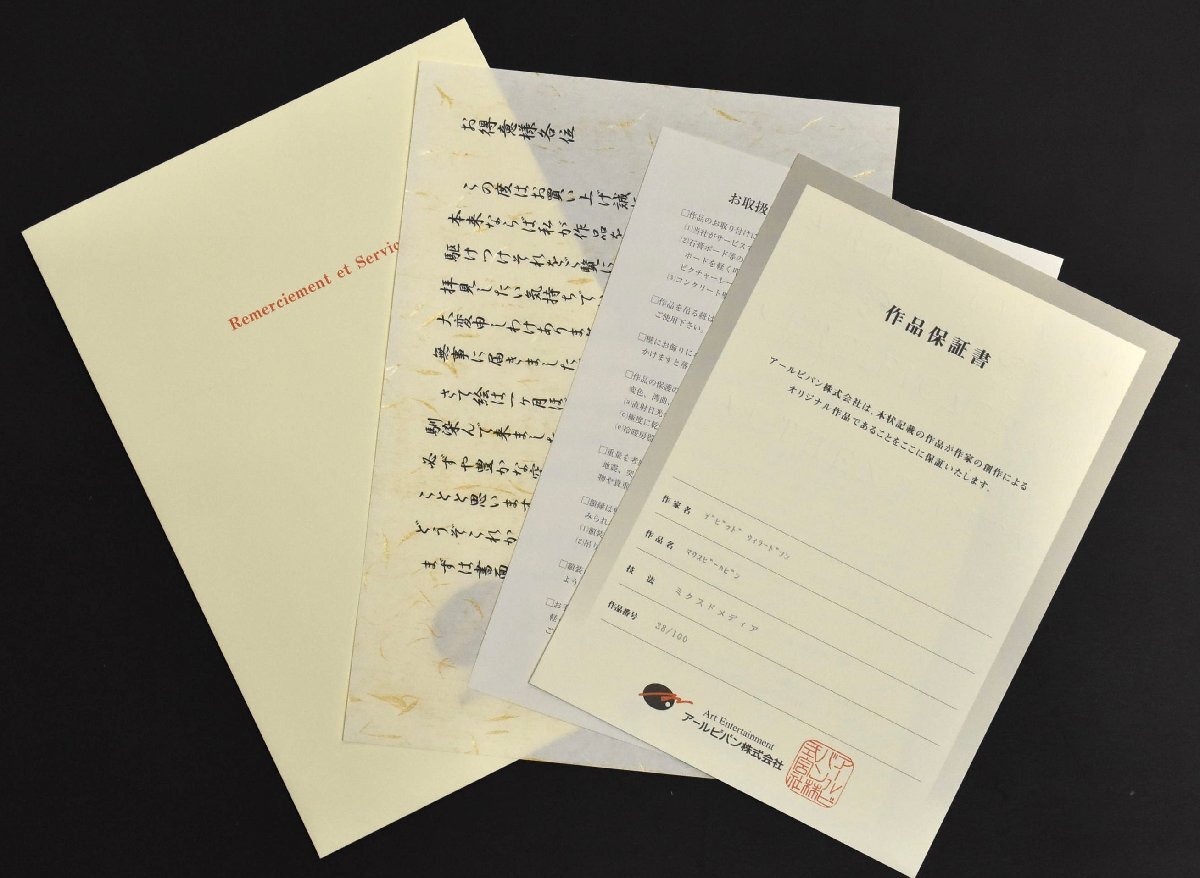 Remerciement et Servic
お得意様各位
この度はお買い上げ誠に
本来ならば私が作品を
駆けつけそれをご覧に
拝見したい気持ちで
大変申しわけありませ
無事に届きました
さて絵は一ヶ月ほ
馴染んで来ました
必ずや豊かな空
ことと思います
どうぞこれか
まずは書面
お取扱
□作品のお取り付けに
(1)当社がサービス
(2)石膏ボード等の
ボードを軽く叩
ピクチャーレー
(3)コンクリート
□作品を吊る紐は
ご使用下さい。
□壁にお飾りに
かけますと落
□作品の保護の
変色、湾曲
(a)直射日光
(c)極度に乾
(e)冷暖房
□重量を考
地震、突
物や貴重
□額縁は
みられ
(1)額装
(2)吊り
□額装
よう
□お手
軽
作品保証書
アールビバン株式会社は、本状記載の作品が作家の創作による
オリジナル作品であることをここに保証いたします。
作家名 デビッド ウィラードソン
作品名 マウスピールビン
技法 ミクスドメディア
作品番号 38/100
Art Entertainment
アールビバン株式会社